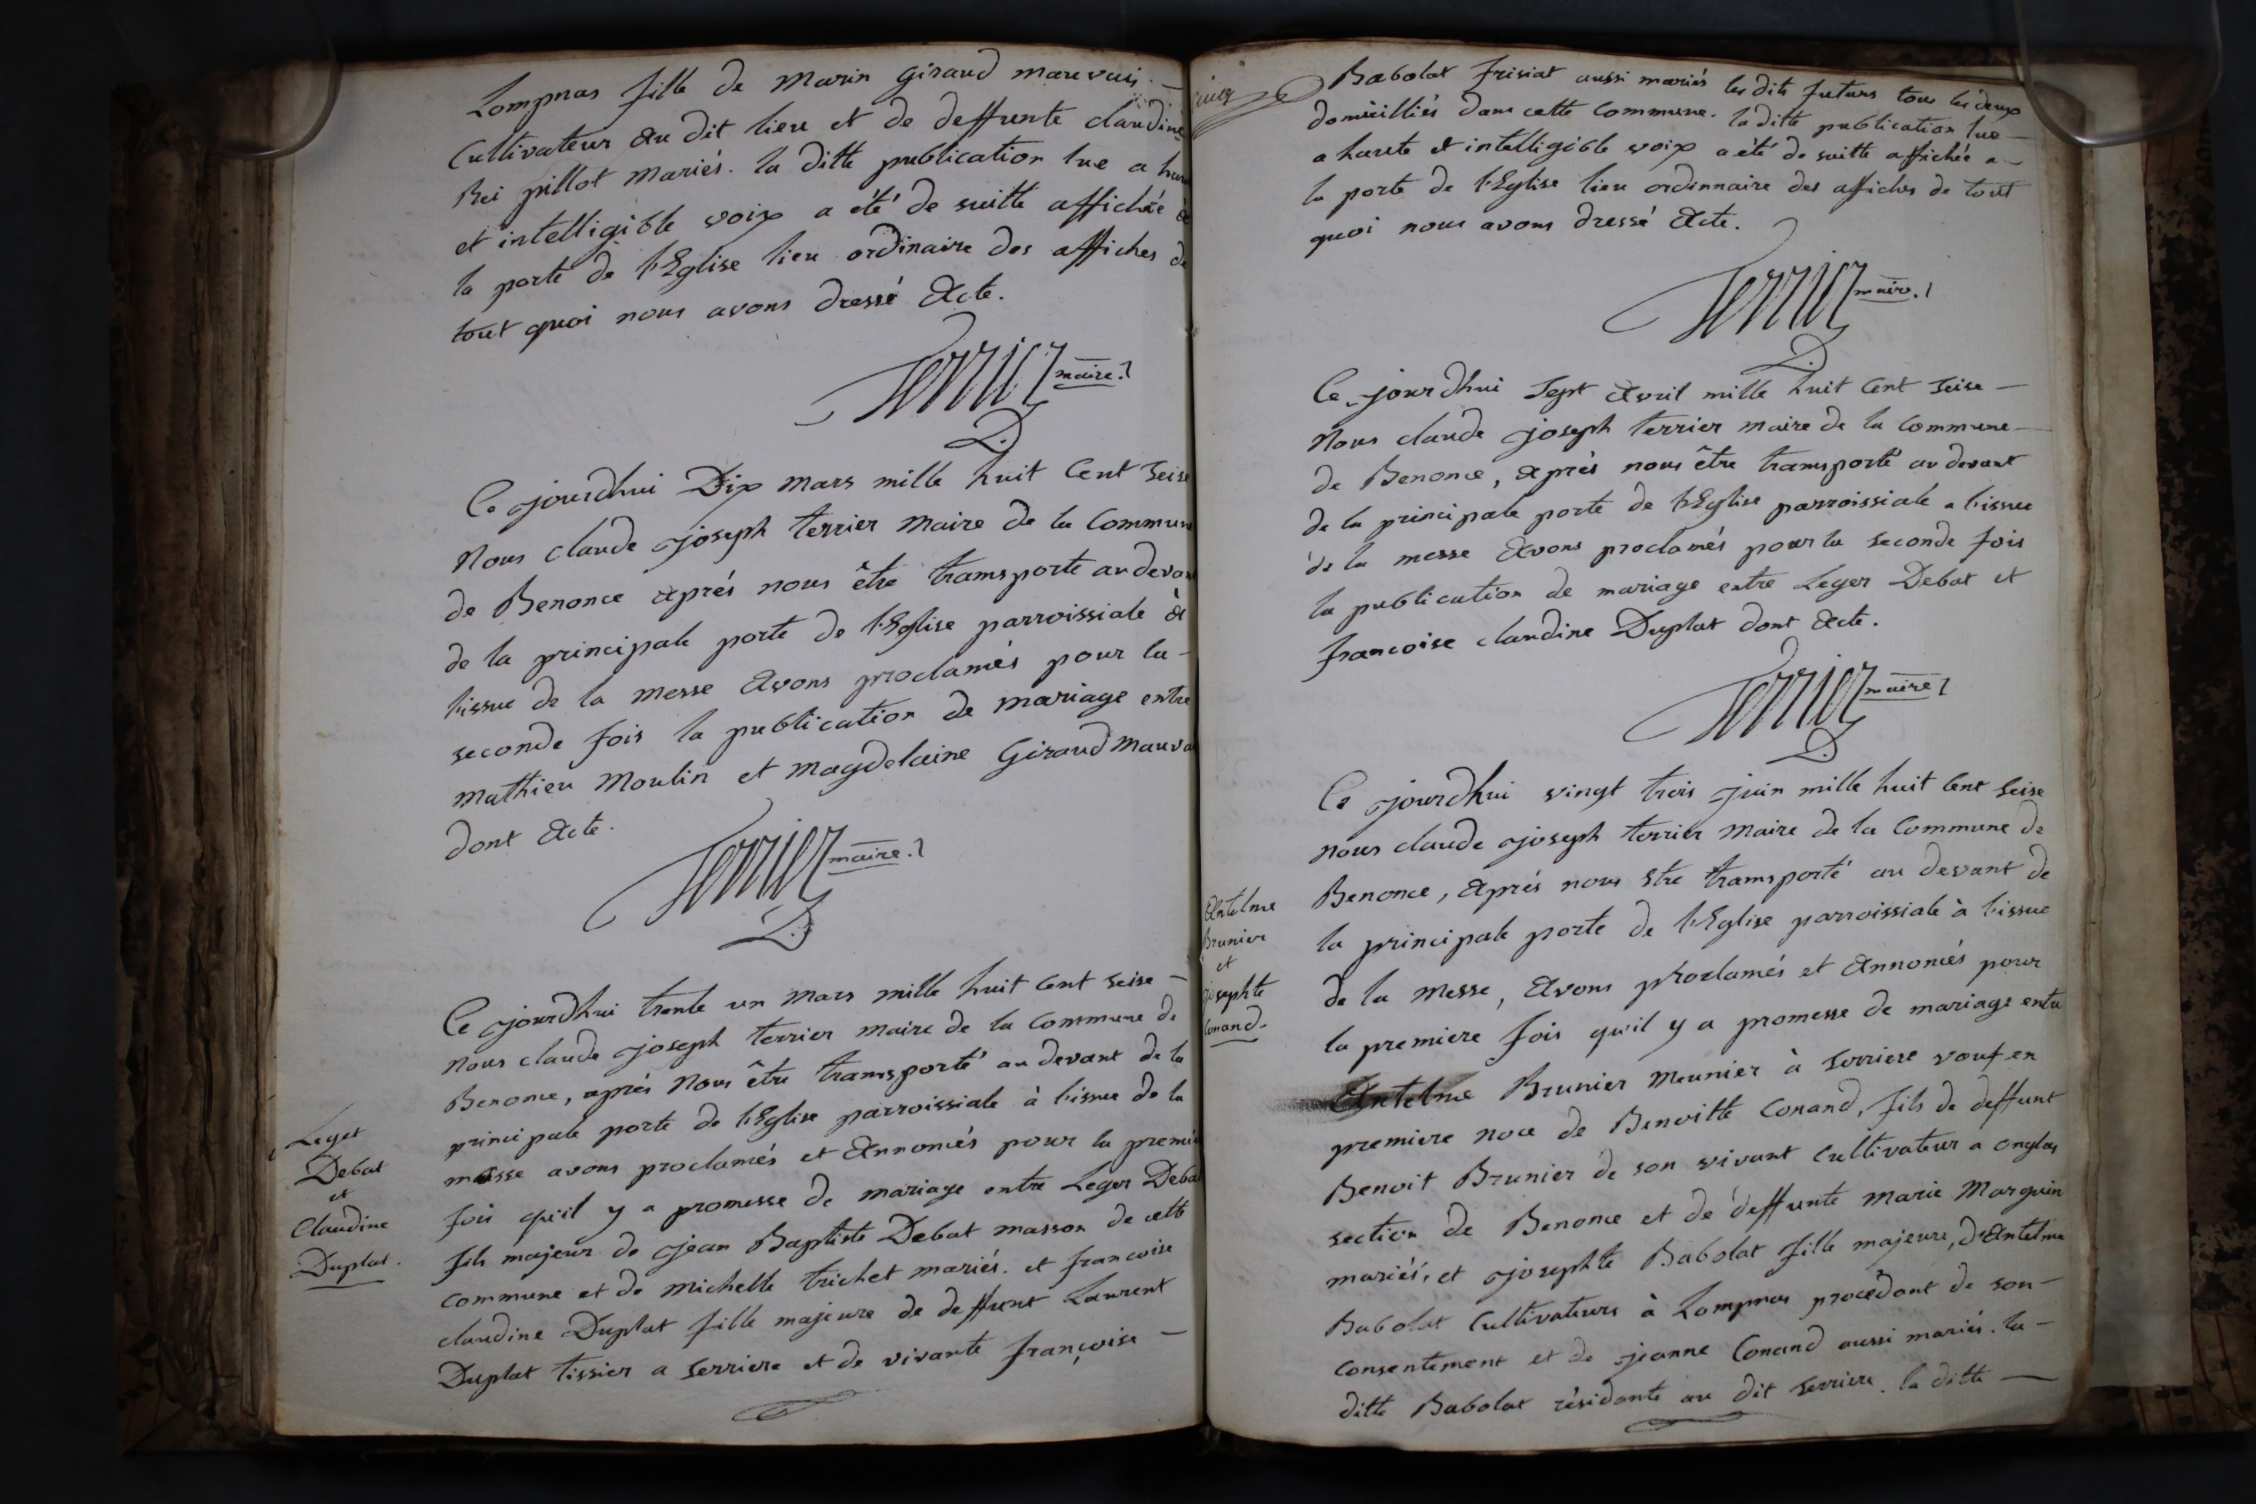 Lompnas fille de Marin Giraud mauvais
Cultivateur au dit lieu et de deffunte claudine
Rei pillot mariés. la ditte publication lue a hau
et intelligible voix a été de suitte affichée à
la porte de l'Eglise lieu ordinaire des affiches de
tout quoi nous avons dressé Acte.
Terrier maire.
Ce jourdhui Dix mars mille huit Cent seise
Nous claude joseph terrier Maire de la Commune
de Benonce après nous être transporté au devant
de la principale porte de l'Eglise parroissiale à
l'issue de la messe Avons proclamés pour la -
seconde fois la publication de mariage entre
mathieu Moulin et magdelaine Giraud mauva
dont Acte.
Terrier maire.
Leger
Debat
et
Claudine
Duplat.
Ce jourdhui trente un mars mille huit Cent seise -
Nous claude joseph terrier maire de la Commune de
Benonce, après Nous être transporté au devant de la
principale porte de l'Eglise parroissiale à l'issue de la
messe avons proclamés et Annoncés pour la premie
fois qu'il y a promesse de mariage entre Leger Deba
fils majeur de jean Baptiste Debat masson de cette
commune et de Michelle trichet mariés. et francoise
claudine Duplat fille majeure de deffunt Laurent
Duplat tissier a serriere et de vivante françoise -
Babolat frisiat aussi mariés les dits futurs tous les deux
domicilliés dans cette Commune. la ditte publication lue -
a haute et intelligible voix a été de suitte affichée a -
la porte de l'Eglise lieu ordinnaire des affiches de tout
quoi nous avons dressé Acte.
Terrier maire.
Ce jourdhui sept Avril mille huit Cent seise -
Nous claude joseph terrier maire de la Commune -
de Benonce, après nous être transporté au devant
de la principale porte de l'Eglise parroissiale a l'issue
de la messe Avons proclamés pour la seconde fois
la publication de mariage entre Leger Debat et
francoise claudine Duplat dont Acte.
Terrier maire
Antelme
Brunier
et
josephte
Conand.
Ce jourdhui vingt trois juin mille huit Cent seise
nous claude joseph terrier Maire de la Commune de
Benonce, Après nous etre transporté au devant de
la principale porte de l'Eglise parroissiale à l'issue
de la Messe, Avons proclamés et Annoncés pour
la premiere fois qu'il y a promesse de mariage entre
Antelme Brunier Meunier à serriere veuf en
premiere noce de Benoitte Conand, fils de deffunt
Benoit Brunier de son vivant Cultivateur a onglas
section de Benonce et de deffunte Marie Marguin
mariés, et josephte Babolat fille majeure, d'Antelme
Babolat Cultivateurs à Lompnas procèdant de son -
consentement et de jeanne Conand aussi mariés. la -
ditte Babolat résidante au dit serriere. la ditte -